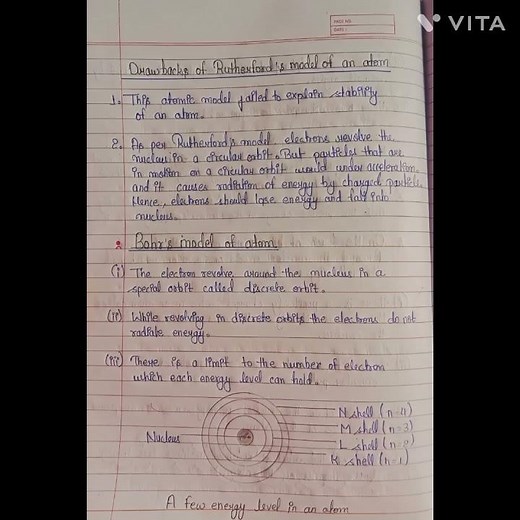 VITA
PAGE NO.
DATE:
Drawbacks of Rutherford's model of an atom
1. This atomic model failed to explain stability
of an atom.
2. As per Rutherford's model, electrons revolve the
nucleus in a circular orbit. But particles that are
in motion on a circular orbit would under acceleration,
and it causes radiation of energy by charged particle.
Hence, electrons should lose energy and fall into
nucleus.
Bohr's model of atom
(i) The electron revolve around the nucleus in a
special orbit called discrete orbit.
(ii) While revolving in discrete orbits the electrons do not
radiate energy.
(iii) There is a limit to the number of electron
which each energy level can hold.
N shell (n=4)
M shell (n=3)
Nucleus L shell (n=2)
K shell (n=1)
A few energy level in an atom